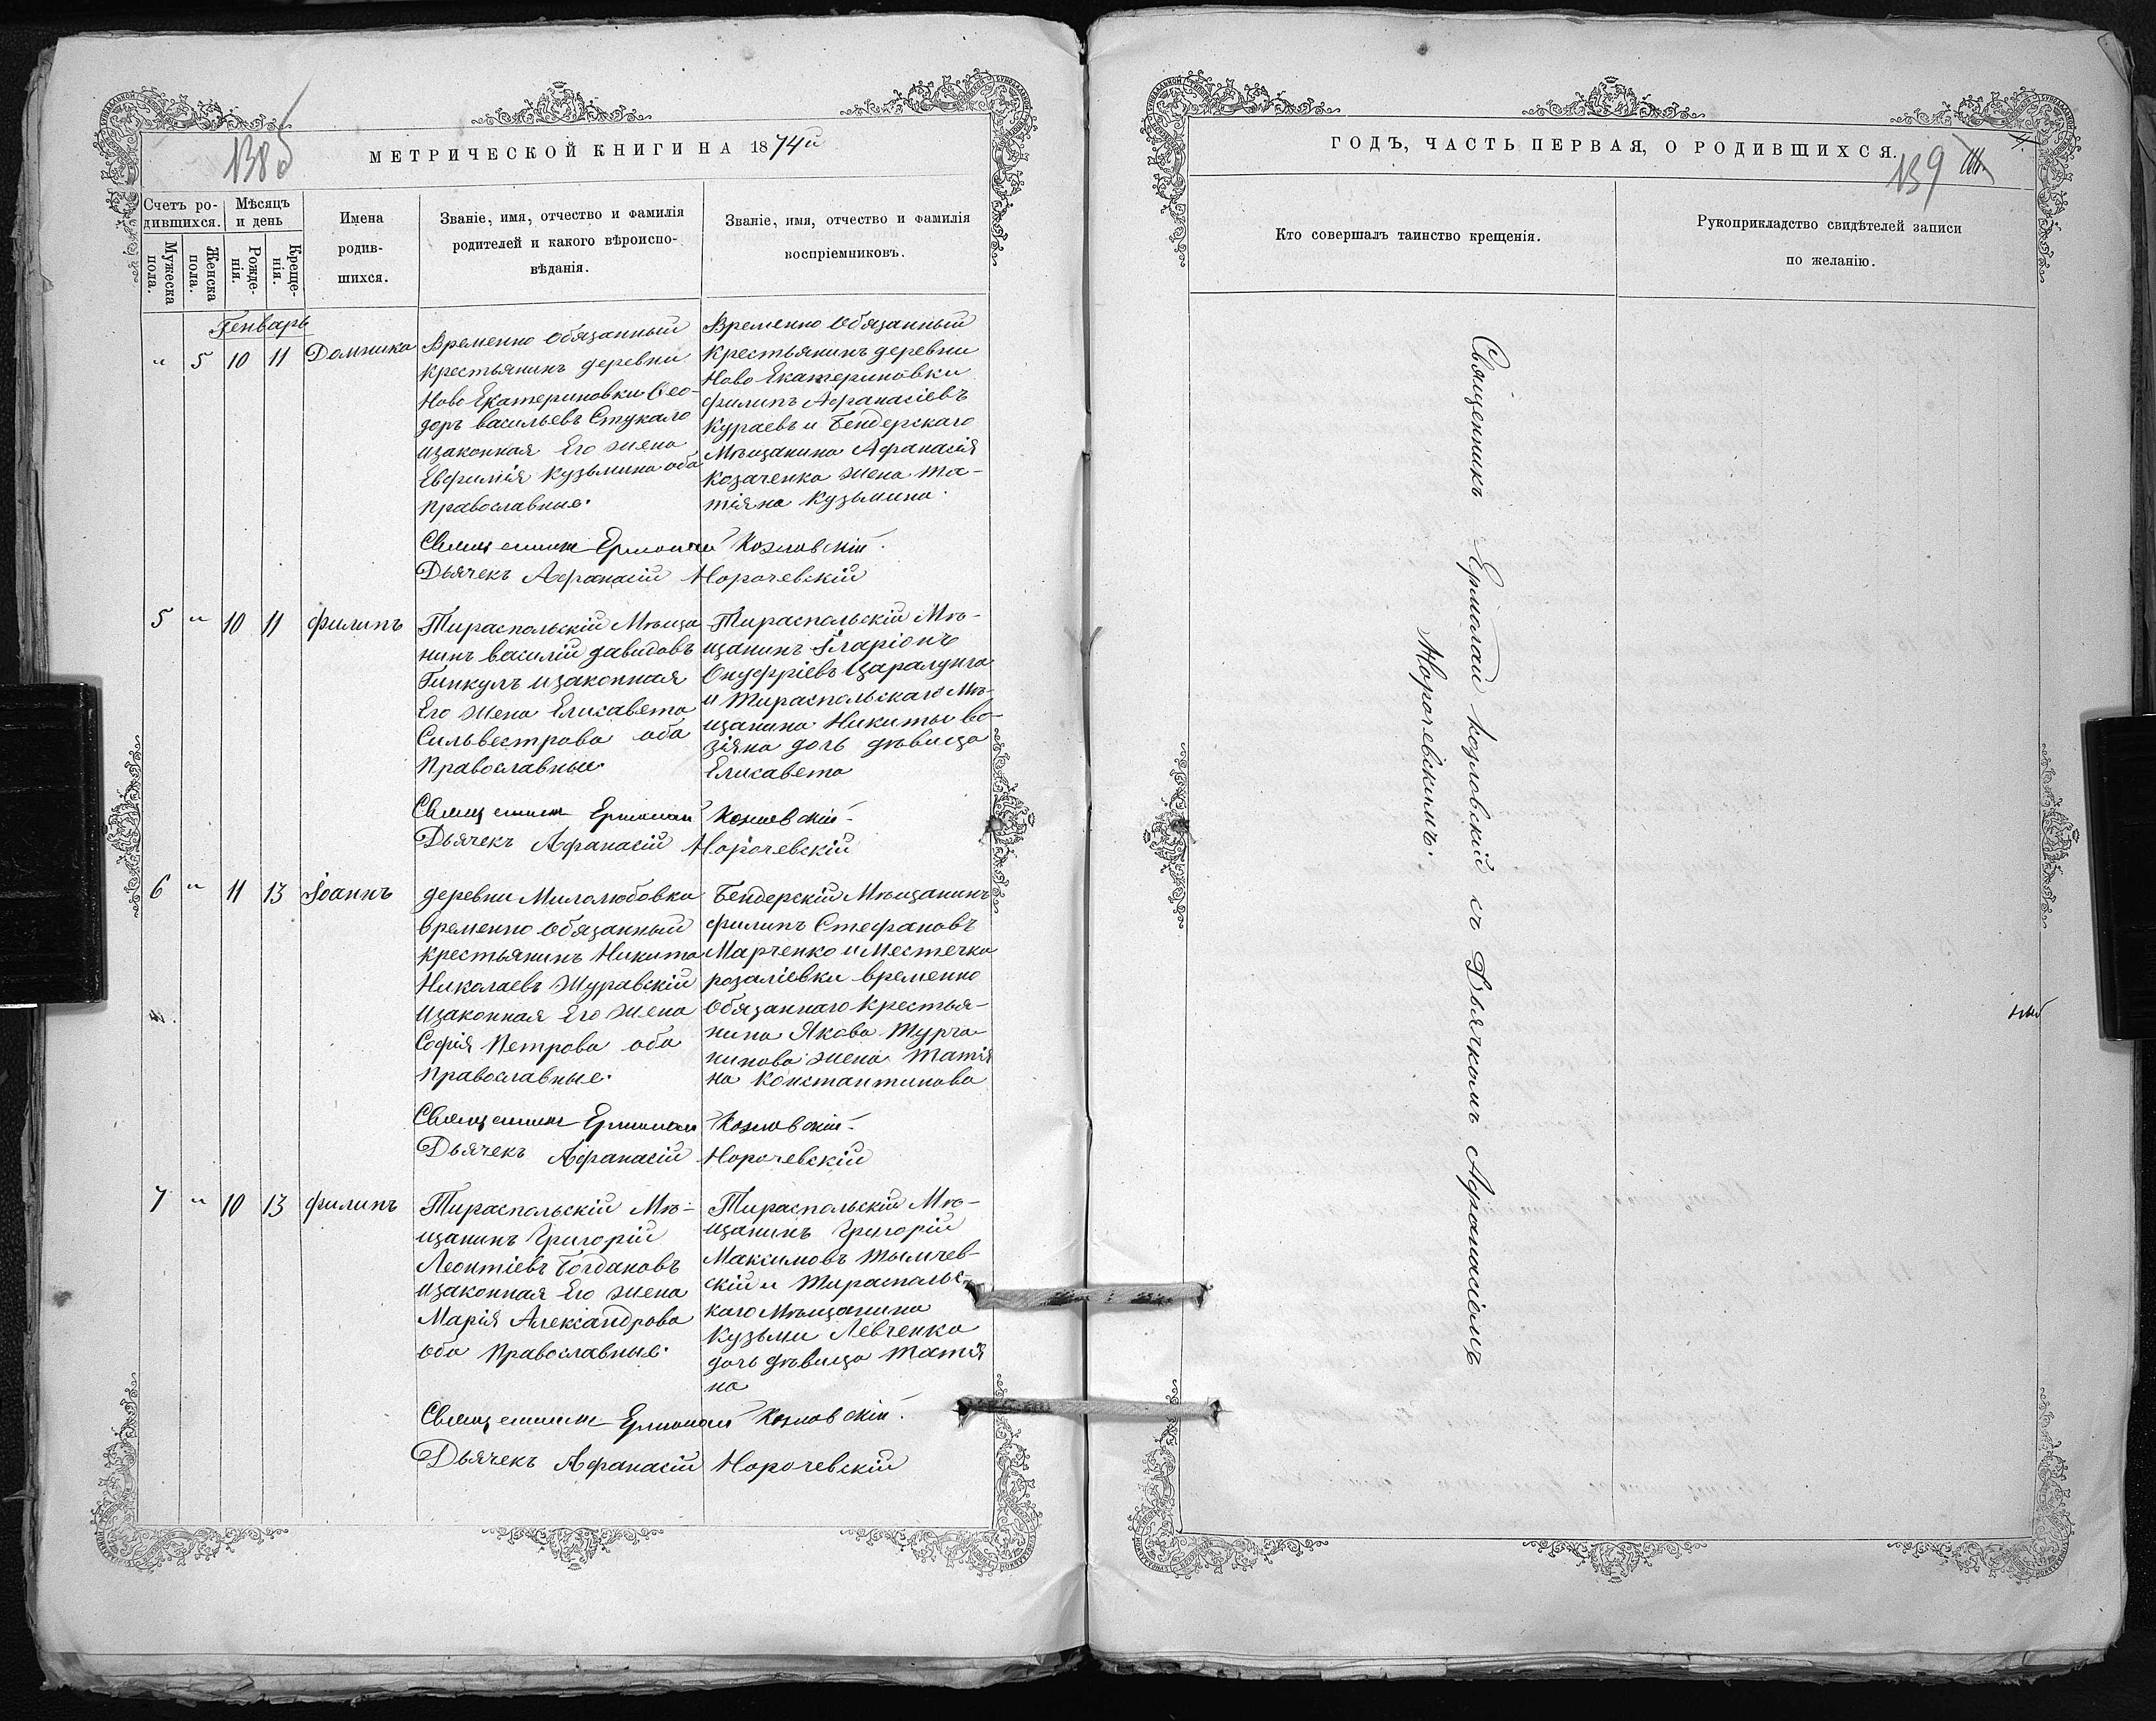 138об
МЕТРИЧЕСКОЙ КНИГИ НА 1874й
Счетъ ро-
дившихся.
Мѣсяцъ
и день
Мужеска
пола.
Женска
пола.
Рожде-
нія.
Креще-
нія.
Имена
родив-
шихся.
Званіе, имя, отчество и фамилія
родителей и какого вѣроиспо-
вѣданія.
Званіе, имя, отчество и фамилія
воспріемниковъ.
Генварь
" 5 10 11 Домника
Временно обязанный
крестьянинъ деревни
Ново Екатериновки Ѳео-
доръ васильевъ Стукало
изаконная Его жена
Евфимія Кузьмина оба
православные.
Временно Обязанный
Крестьянинъ деревни
Ново Екатериновки
филипъ Афанасіевъ
Кураевъ и Бендерскаго
Мѣщанина Афанасія
Козаченка жена Та-
тіяна Кузьмина.
Священникъ Ермолай Козловскій.
Дьячекъ Афанасій Норочевскій
5 " 10 11 филипъ
Тираспольскій Мѣща
нинъ василій давидовъ
Гинкулъ изаконная
Его жена Елисавета
Сильвестрова оба
Православные.
Тираспольскій Мѣ-
щанинъ Іларіонъ
Онуфріевъ Царалунга
и Тираспольскаго Мѣ-
щанина Никиты во-
зіяна дочь дѣвица
Елисавета
Священникъ Ермолай Козловскій.
Дьячекъ Афанасій Норочевскій
6 " 11 13 Іоаннъ
деревни Милолюбовки
временно обязанный
крестьянинъ Никита
Николаевъ Журавскій
изаконная Его жена
Софія Петрова оба
Православные.
Бендерскій Мѣщанинъ
филипъ Стефановъ
Марченко и Местечка
розаліевки временно
Обязаннаго Крестья-
нина Якова Турча-
нинова жена Татія
на Константинова
Священникъ Ермолай Козловскій.
Дьячекъ Афанасій Норочевскій
7 " 10 13 филипъ
Тираспольскій Мѣ-
щанинъ Григорій
Леонтіевъ Богдановъ
изаконная Его жена
Марія Александрова
оба Православные.
Тираспольскій Мѣ-
щанинъ Григорій
Максимовъ Тымчев-
скій и Тираспольс-
каго Мѣщанина
Кузьми Левченка
дочь дѣвица Татія
на
Священникъ Ермолай Козловскій.
Дьячекъ Афанасій Норочевскій
ГОДЪ, ЧАСТЬ ПЕРВАЯ, О РОДИВШИХСЯ.
139
Кто совершалъ таинство крещенія.
Рукоприкладство свидѣтелей записи
по желанію.
Священникъ Ермолай Козловскій съ Дьячкомъ Афанасіемъ
Норочевскимъ.